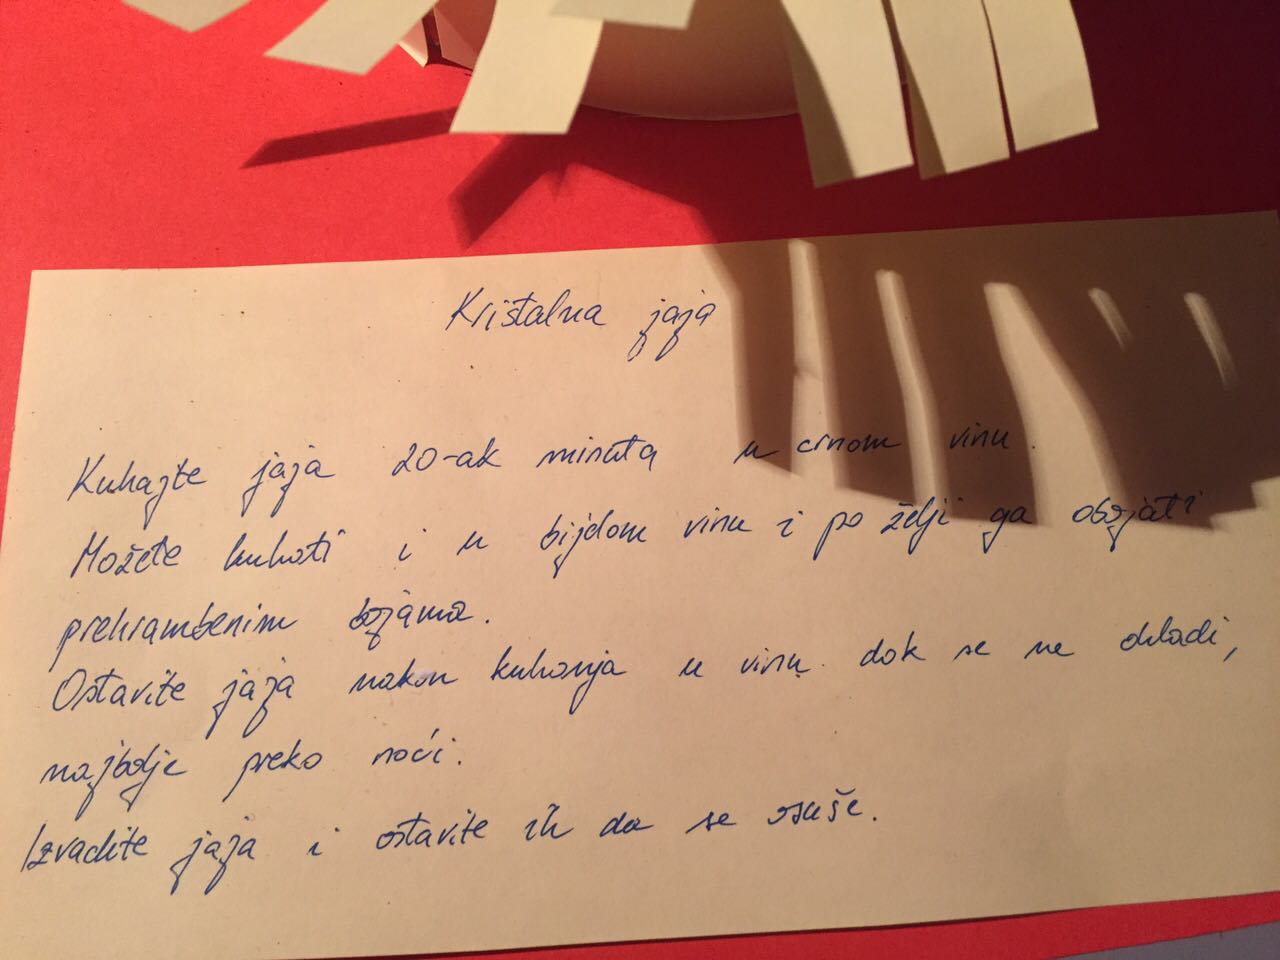 Kristalna jaja
Kuhajte jaja 20-ak minuta u crnom vinu.
Možete kuhati i u bijelom vinu i po želji ga obojati
prehrambenim bojama.
Ostavite jaja nakon kuhanja u vinu dok se ne ohladi,
najbolje preko noći.
Izvadite jaja i ostavite ih da se osuše.